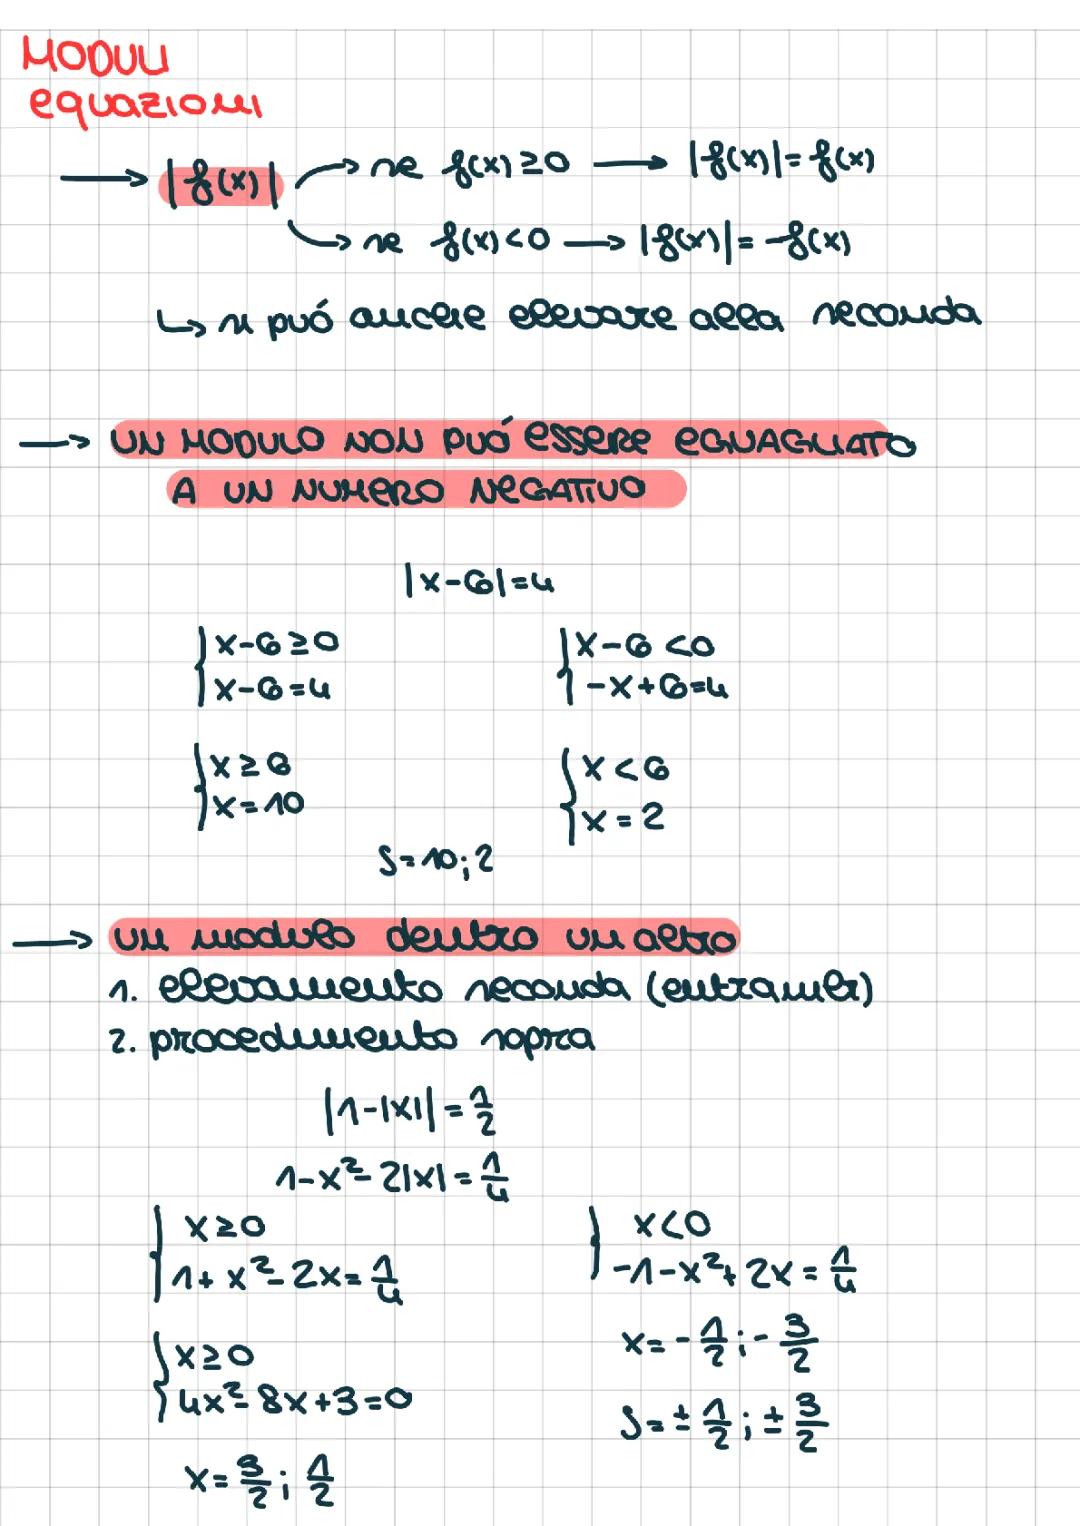 MODULI
equazioni
→ |f(x)| → se f(x) ≥ 0 → |f(x)| = f(x)
→ se f(x) < 0 → |f(x)| = -f(x)
↳ si può anche elevare alla seconda
→ UN MODULO NON PUÓ ESSERE EGUAGLIATO
A UN NUMERO NEGATIVO
|x-6|=4
{x-6≥0 {x-6<0
{x-6=4 {-x+6=4
{x≥6 {x<6
{x=10 {x=2
S=10;2
→ un modulo dentro un altro
1. elevamento seconda (entrambi)
2. procedimento sopra
|1-|x||=1/2
1-x²-2|x|=1/4
{x≥0 {x<0
{1+x²-2x=1/4 {-1-x²+2x=1/4
x=-1/2;-3/2
{x≥0
{4x²-8x+3=0
S=±1/2;±3/2
x=3/2;1/2